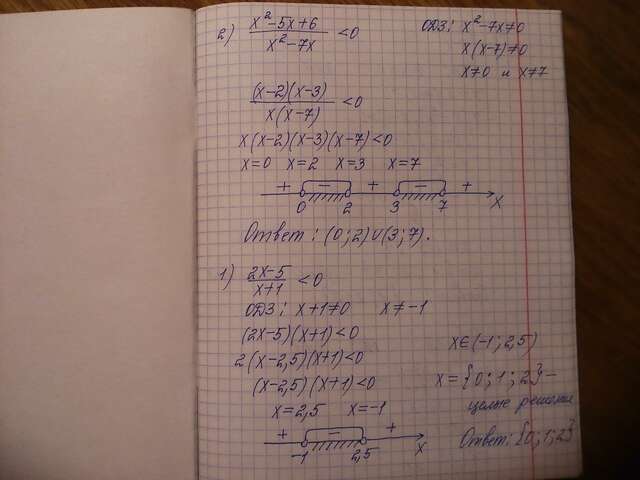 2) (x²-5x+6)/(x²-7x) < 0
ОДЗ: x²-7x≠0
x(x-7)≠0
x≠0 и x≠7
(x-2)(x-3)/(x(x-7)) < 0
x(x-2)(x-3)(x-7)<0
x=0 x=2 x=3 x=7
+ - + - +
0 2 3 7 x
Ответ: (0;2)∪(3;7).
1) (2x-5)/(x+1) < 0
ОДЗ: x+1≠0 x≠-1
(2x-5)(x+1)<0
2(x-2,5)(x+1)<0
(x-2,5)(x+1)<0
x=2,5 x=-1
+ - +
-1 2,5 x
x∈(-1;2,5)
x={0;1;2}-
целые решения
Ответ: {0;1;2}